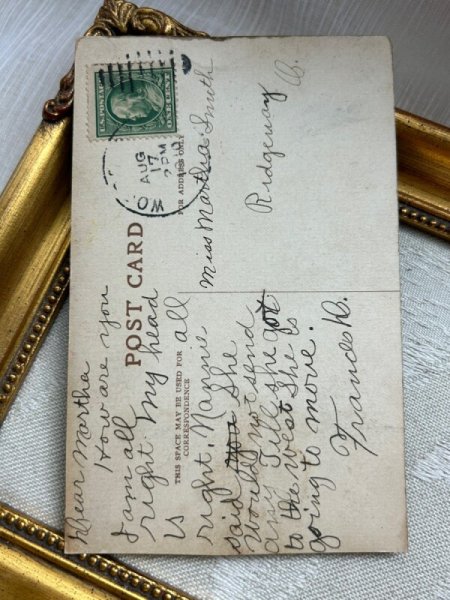 U.S. POSTAGE
ONE CENT
AUG
17
2 PM
POST CARD
THIS SPACE MAY BE USED FOR
CORRESPONDENCE
FOR ADDRESS ONLY
Dear Martha
How are you
I am all
right. My head
is all
right. Nannie
said she
would not send
any till she got
to the west. She is
going to move.
Frances D.
Miss Martha Smith
Ridgeway
O.